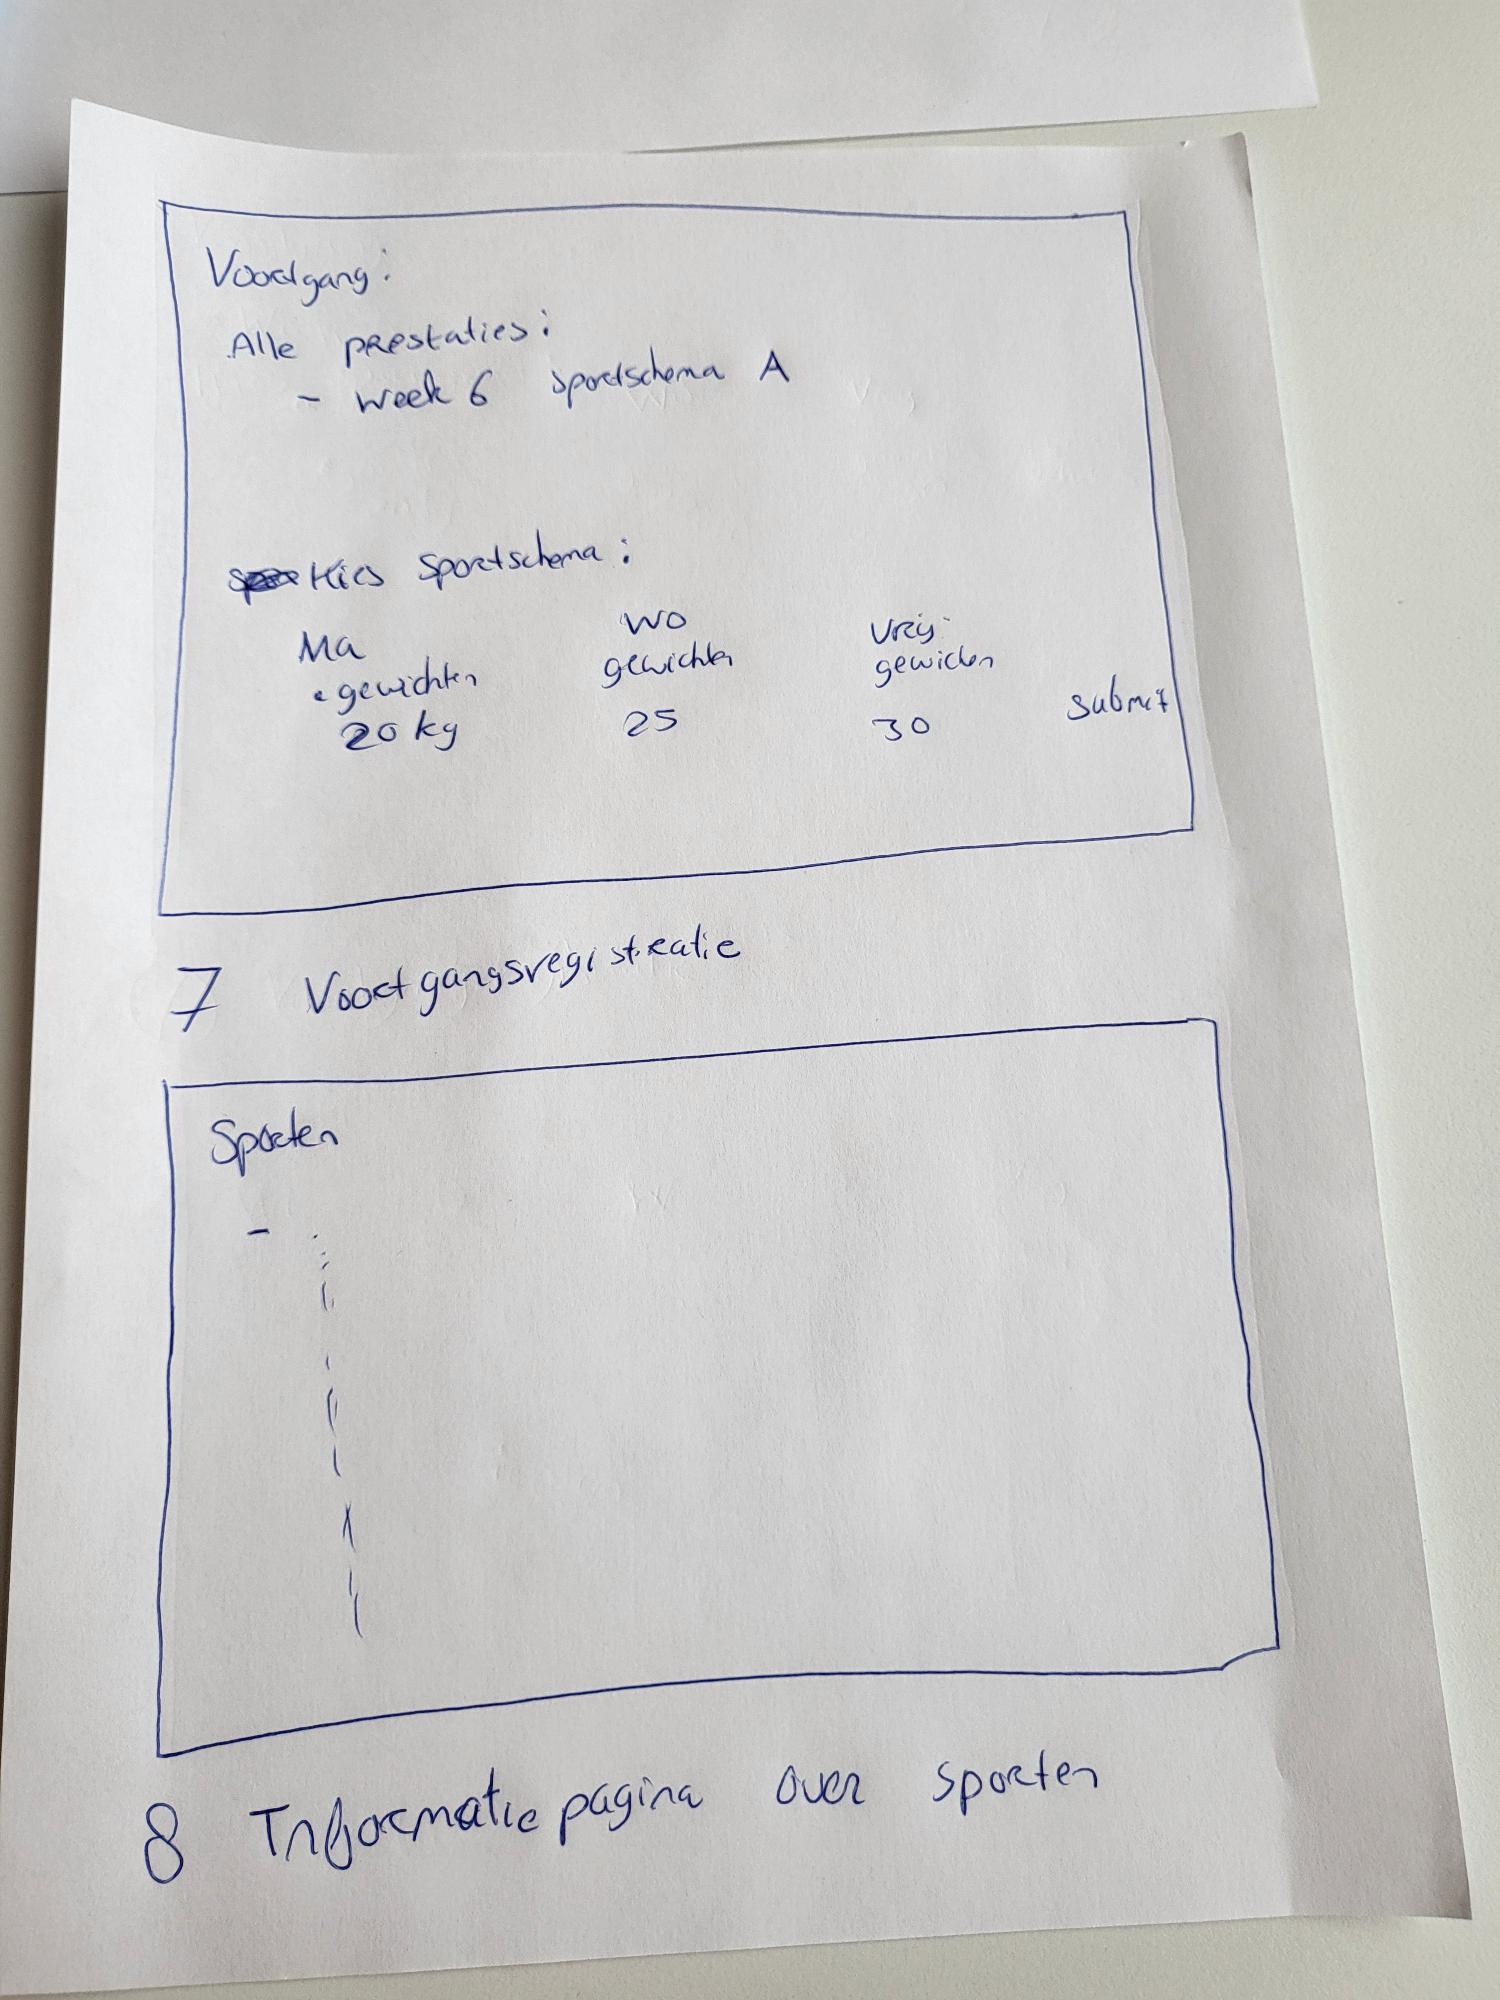 Voortgang:
Alle prestaties:
- week 6 sportschema A
Kies sportschema:
Ma wo vrij
• gewichten gewichten gewichten
20 kg 25 30 submit
7 Voortgangsregistratie
Sporten
-
8 Informatie pagina over sporten